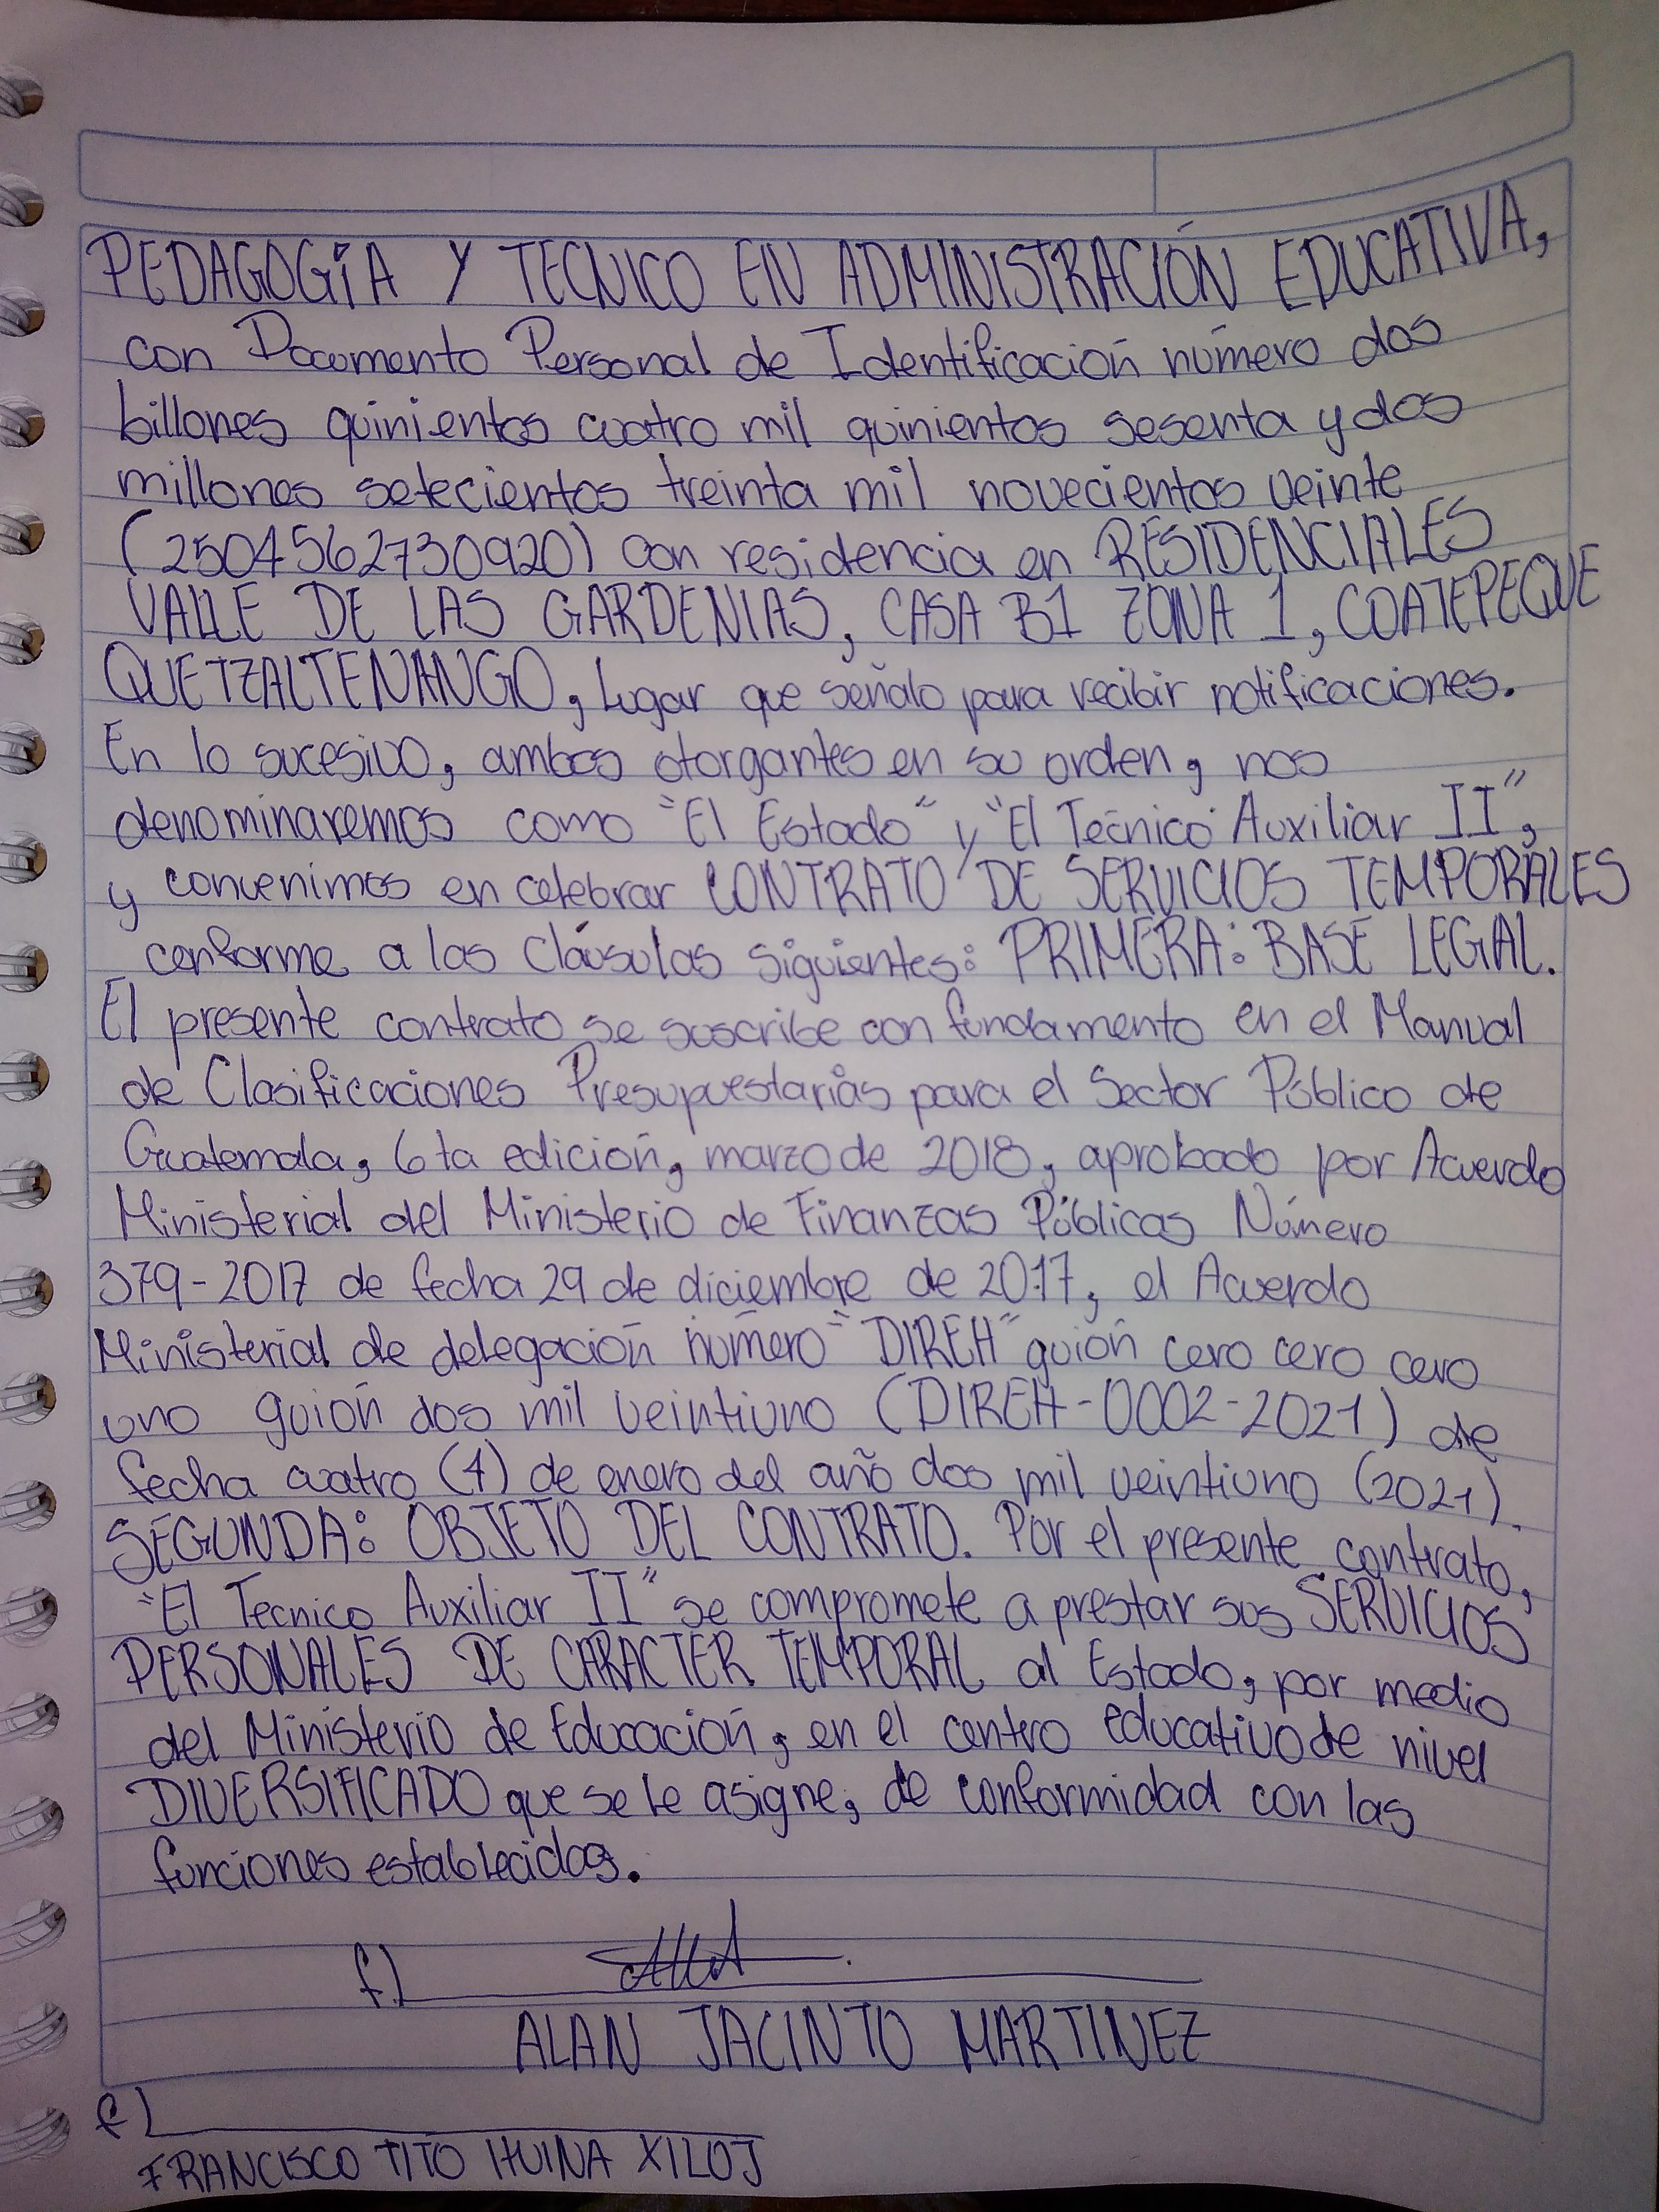 PEDAGOGÍA Y TECNICO EN ADMINISTRACIÓN EDUCATIVA,
con Documento Personal de Identificación número dos
billones quinientos cuatro mil quinientos sesenta y dos
millones setecientos treinta mil novecientos veinte
(2504562730920) con residencia en RESIDENCIALES
VALLE DE LAS GARDENIAS, CASA B1 ZONA 1, COATEPEQUE
QUETZALTENANGO, lugar que señalo para recibir notificaciones.
En lo sucesivo, ambos otorgantes en su orden, nos
denominaremos como "El Estado" y "El Técnico Auxiliar II",
y convenimos en celebrar CONTRATO DE SERVICIOS TEMPORALES
conforme a las Cláusulas siguientes: PRIMERA: BASE LEGAL.
El presente contrato se suscribe con fundamento en el Manual
de Clasificaciones Presupuestarias para el Sector Público de
Guatemala, 6ta edición, marzo de 2018, aprobado por Acuerdo
Ministerial del Ministerio de Finanzas Públicas Número
379-2017 de fecha 29 de diciembre de 2017, el Acuerdo
Ministerial de delegación número "DIREH" guión cero cero cero
uno guión dos mil veintiuno (DIREH-0002-2021) de
fecha cuatro (4) de enero del año dos mil veintiuno (2021).
SEGUNDA: OBJETO DEL CONTRATO. Por el presente contrato,
"El Tecnico Auxiliar II" se compromete a prestar sus SERVICIOS
PERSONALES DE CARACTER TEMPORAL al Estado, por medio
del Ministerio de Educación, en el centro educativo de nivel
DIVERSIFICADO que se le asigne, de conformidad con las
funciones establecidas.
f)
ALAN JACINTO MARTINEZ
f)
FRANCISCO TITO HUINA XILOJ